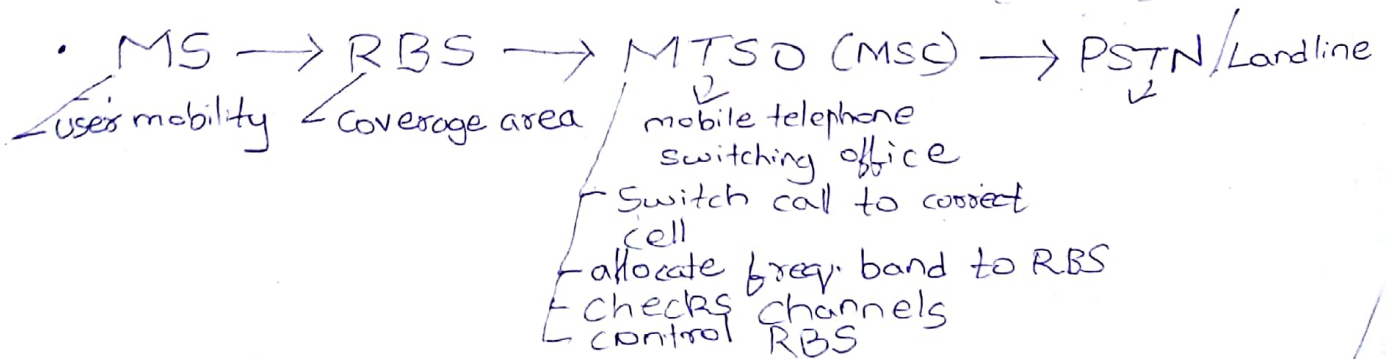 • MS → RBS → MTSO (MSC) → PSTN/Landline
user's mobility
coverage area
mobile telephone
switching office
- Switch call to correct
cell
- allocate freq. band to RBS
- checks channels
- control RBS